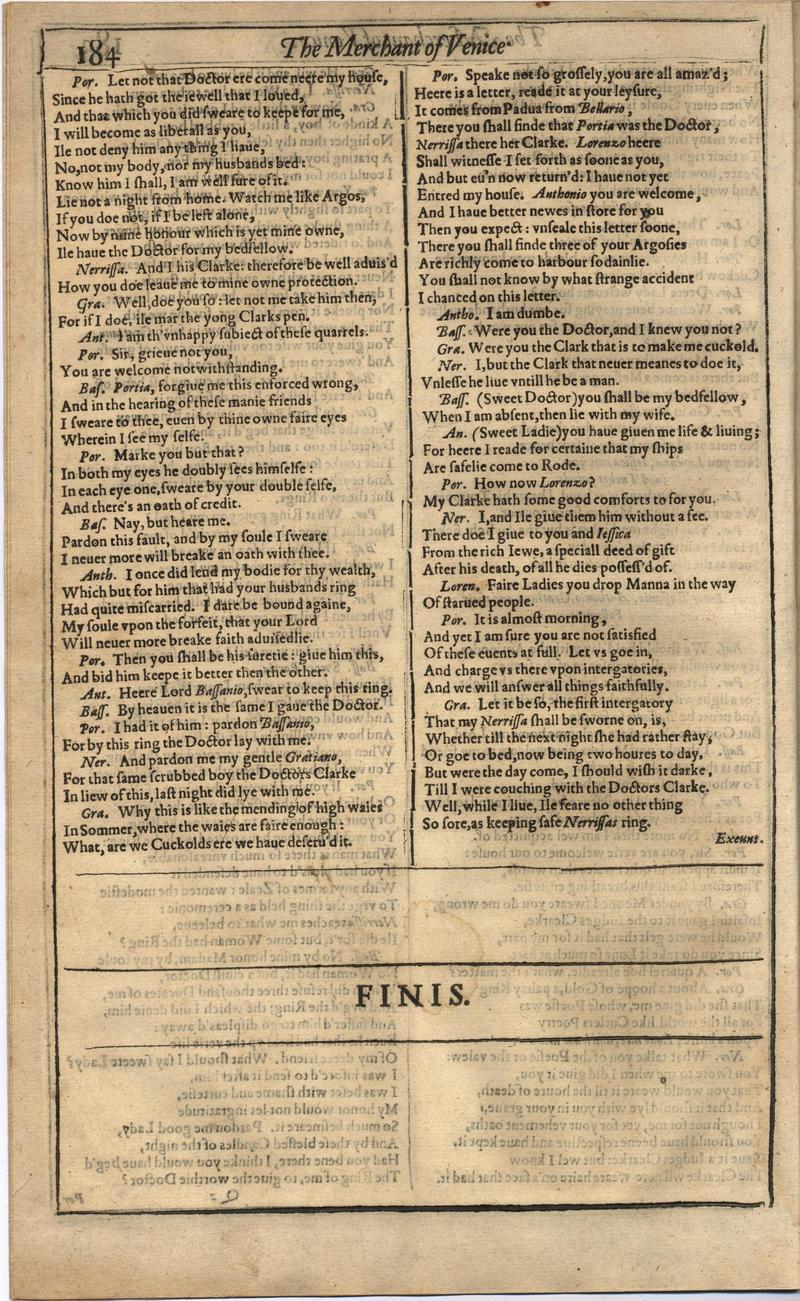 184
The Merchant of Venice.
Por. Let not that Doctor ere come neere my house,
Since he hath got the iewell that I loued,
And that which you did sweare to keepe for me,
I will become as liberall as you,
Ile not deny him any thing I haue,
No, not my body, nor my husbands bed:
Know him I shall, I am well sure of it.
Lie not a night from home. Watch me like Argos,
If you doe not, if I be left alone,
Now by mine honour which is yet mine owne,
Ile haue the Doctor for my bedfellow.
Nerrissa. And I his Clarke: therefore be well aduis'd
How you doe leaue me to mine owne protection.
Gra. Well, doe you so: let not me take him then,
For if I doe, ile mar the yong Clarks pen.
Ant. I am th'vnhappy subiect of these quarrels.
Por. Sir, grieue not you,
You are welcome notwithstanding.
Bas. Portia, forgiue me this enforced wrong,
And in the hearing of these manie friends
I sweare to thee, euen by thine owne faire eyes
Wherein I see my selfe.
Por. Marke you but that?
In both my eyes he doubly sees himselfe:
In each eye one, sweare by your double selfe,
And there's an oath of credit.
Bas. Nay, but heare me.
Pardon this fault, and by my soule I sweare
I neuer more will breake an oath with thee.
Anth. I once did lend my bodie for thy wealth,
Which but for him that had your husbands ring
Had quite miscarried. I dare be bound againe,
My soule vpon the forfeit, that your Lord
Will neuer more breake faith aduisedlie.
Por. Then you shall be his suretie: giue him this,
And bid him keepe it better then the other.
Ant. Heere Lord Bassanio, swear to keep this ring.
Bass. By heauen it is the same I gaue the Doctor.
Por. I had it of him: pardon Bassanio,
For by this ring the Doctor lay with me.
Ner. And pardon me my gentle Gratiano,
For that same scrubbed boy the Doctors Clarke
In liew of this, last night did lye with me.
Gra. Why this is like the mending of high waies
In Sommer, where the waies are faire enough:
What, are we Cuckolds ere we haue deseru'd it.
Por. Speake not so grossely, you are all amaz'd;
Heere is a letter, reade it at your leysure,
It comes from Padua from Bellario,
There you shall finde that Portia was the Doctor,
Nerrissa there her Clarke. Lorenzo heere
Shall witnesse I set forth as soone as you,
And but eu'n now return'd: I haue not yet
Entred my house. Anthonio you are welcome,
And I haue better newes in store for you
Then you expect: vnseale this letter soone,
There you shall finde three of your Argosies
Are richly come to harbour sodainlie.
You shall not know by what strange accident
I chanced on this letter.
Antho. I am dumbe.
Bass. Were you the Doctor, and I knew you not?
Gra. Were you the Clark that is to make me cuckold.
Ner. I, but the Clark that neuer meanes to doe it,
Vnlesse he liue vntill he be a man.
Bass. (Sweet Doctor) you shall be my bedfellow,
When I am absent, then lie with my wife.
An. (Sweet Ladie) you haue giuen me life & liuing;
For heere I reade for certaine that my ships
Are safelie come to Rode.
Por. How now Lorenzo?
My Clarke hath some good comforts to for you.
Ner. I, and Ile giue them him without a fee.
There doe I giue to you and Iessica
From the rich Iewe, a speciall deed of gift
After his death, of all he dies possess'd of.
Loren. Faire Ladies you drop Manna in the way
Of starued people.
Por. It is almost morning,
And yet I am sure you are not satisfied
Of these euents at full. Let vs goe in,
And charge vs there vpon intergatories,
And we will answer all things faithfully.
Gra. Let it be so, the first intergatory
That my Nerrissa shall be sworne on, is,
Whether till the next night she had rather stay,
Or goe to bed, now being two houres to day,
But were the day come, I should wish it darke,
Till I were couching with the Doctors Clarke.
Well, while I liue, Ile feare no other thing
So sore, as keeping safe Nerrissas ring.
Exeunt.
FINIS.